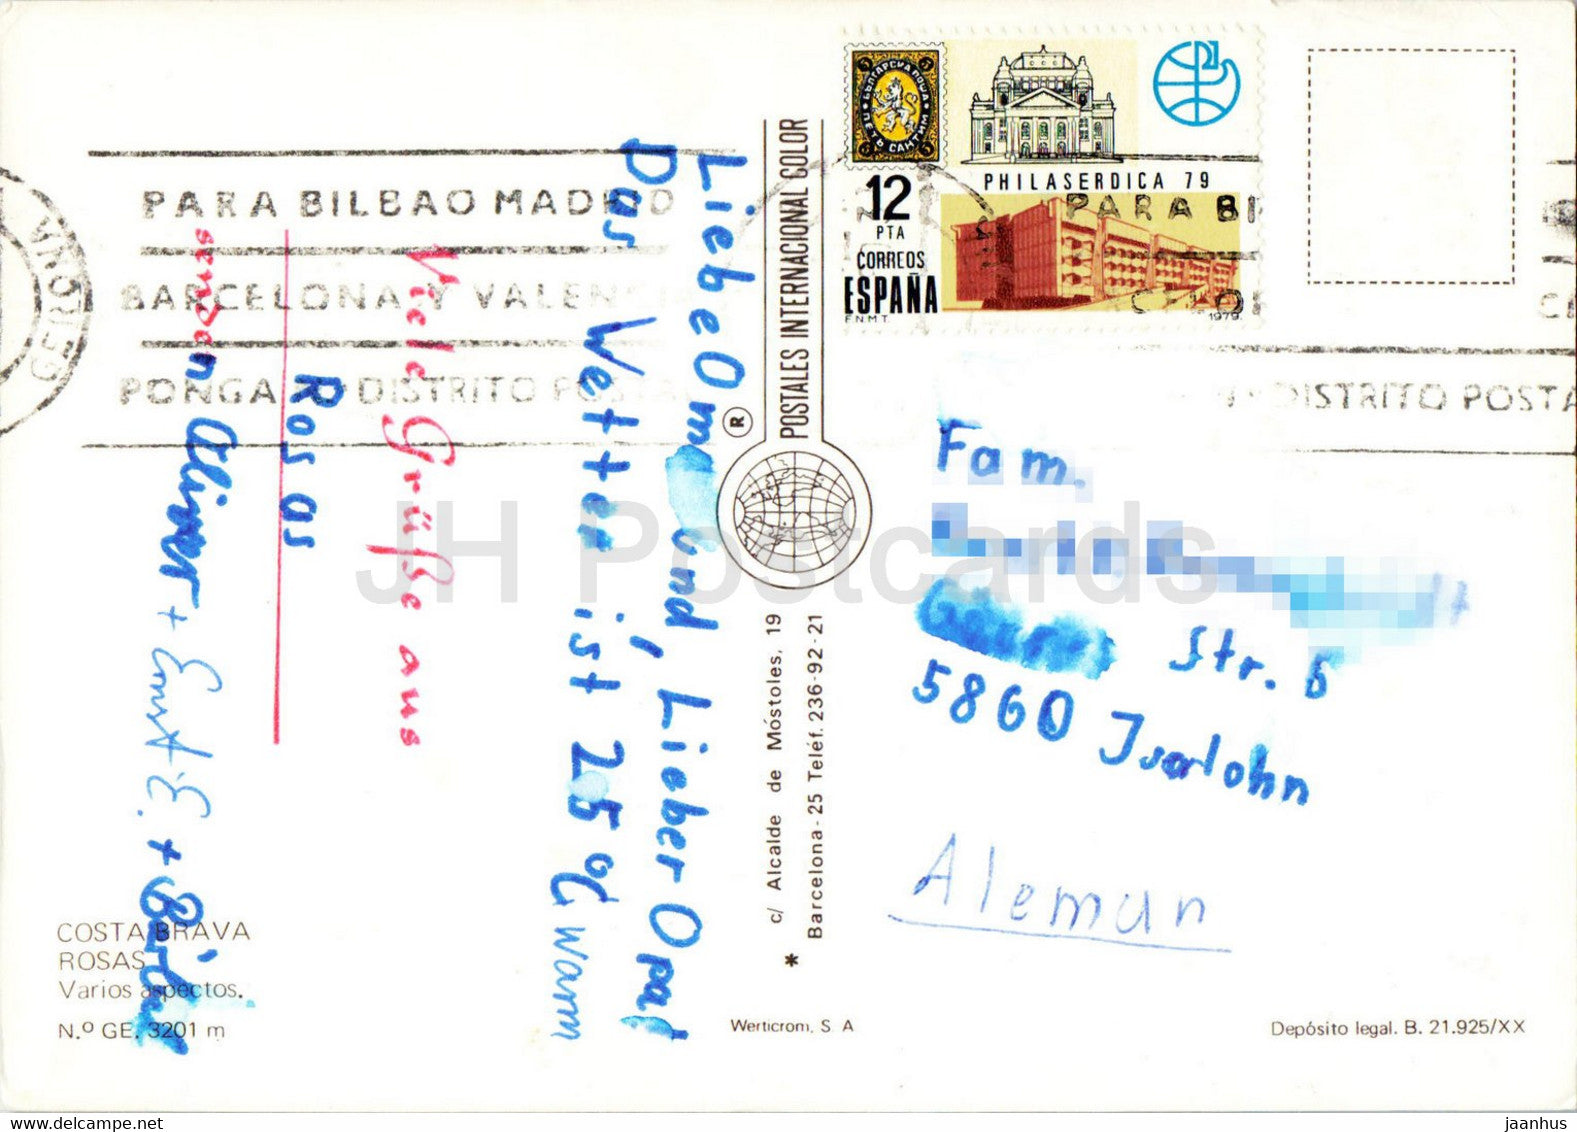 Liebe Oma und, Lieber Opa!
Das Wetter ist 25°C warm
Viele Grüße aus
Rosas
senden Oliver + Ernst E. +
COSTA BRAVA
ROSAS
Varios aspectos.
N.º GE. 3201 m
POSTALES INTERNACIONAL COLOR
®
c/ Alcalde de Móstoles, 19
Barcelona-25 Teléf. 236-92-21
*
Werticrom, S A
Depósito legal. B. 21.925/XX
Fam.
Str. 6
5860 Iserlohn
Aleman
БЪЛГАРСКА ПОЩА
5 5
5 5
ПЕТЬ САНТИМ
PHILASERDICA 79
12
PTA
CORREOS
ESPAÑA
F.N.M.T.
1979.
PARA BILBAO MADRID
BARCELONA Y VALENCIA
PONGA DISTRITO POSTAL
GERONA
PARA BI
DISTRITO POSTA
JH Postcards
jaanhus
www.delcampe.net